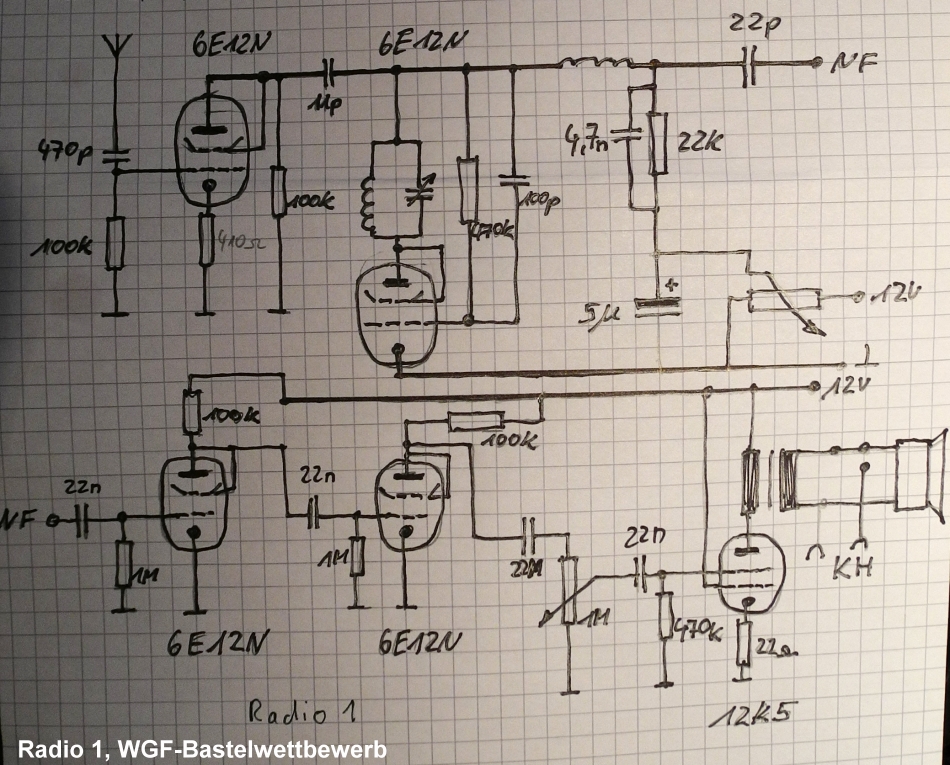 6E12N
6E12N
22p
NF
470p
11p
4,7n
22K
100K
100p
100K
410Ω
470K
5µ
12V
12V
100K
100K
22n
22n
NF
1M
1M
22n
KH
1M
470K
22Ω
6E12N
6E12N
12K5
Radio 1
Radio 1, WGF-Bastelwettbewerb